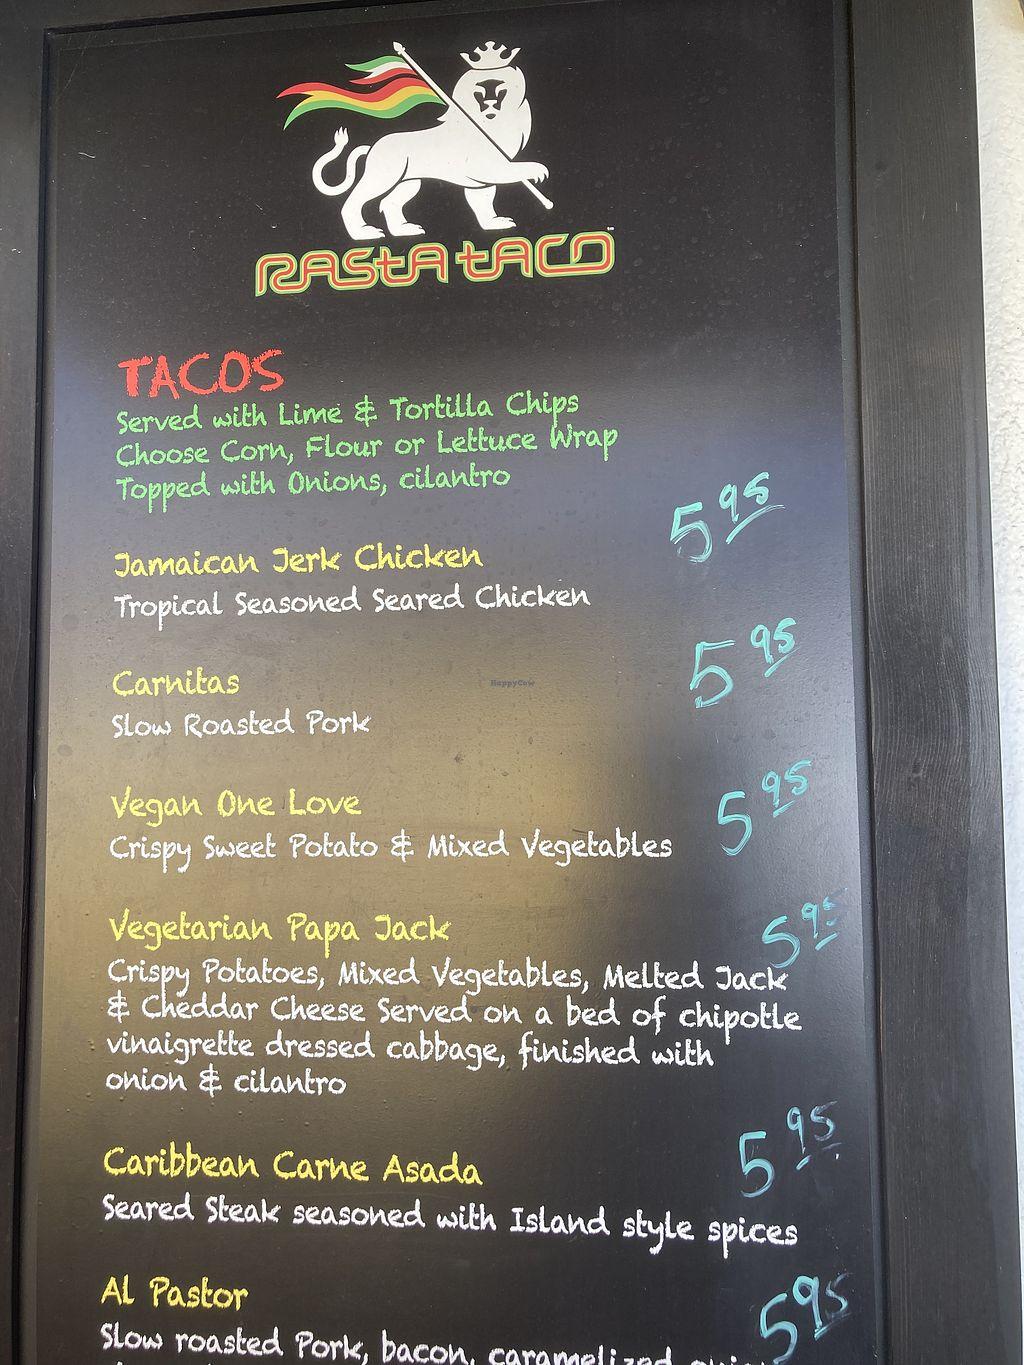 RASTA TACO
TACOS
Served with Lime & Tortilla Chips
Choose Corn, Flour or Lettuce Wrap
Topped with Onions, cilantro
5 95
Jamaican Jerk Chicken
Tropical Seasoned Seared Chicken
5 95
Carnitas
Slow Roasted Pork
HappyCow
5 95
Vegan One Love
Crispy Sweet Potato & Mixed Vegetables
5 95
Vegetarian Papa Jack
Crispy Potatoes, Mixed Vegetables, Melted Jack
& Cheddar Cheese Served on a bed of chipotle
vinaigrette dressed cabbage, finished with
onion & cilantro
5 95
Caribbean Carne Asada
Seared Steak seasoned with Island style spices
5 95
Al Pastor
Slow roasted Pork, bacon, caramelized